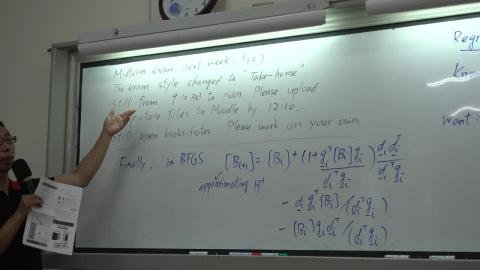 Midterm exam next week - 5/12)
The exam style changed to "Take-home"
still from 9:10 AM to noon. Please upload
picture files to Moodle by 12:10.
still open books/notes. Please work on your own.
Finally, in BFGS [Bi+1] = [Bi] + (1 + qiᵀ[Bi]qi / diᵀqi) didiᵀ / diᵀqi
approximating H⁻¹
- diqiᵀ[Bi] / (diᵀqi)
- [Bi]qidiᵀ / (diᵀqi)
Regr
Know
Want: